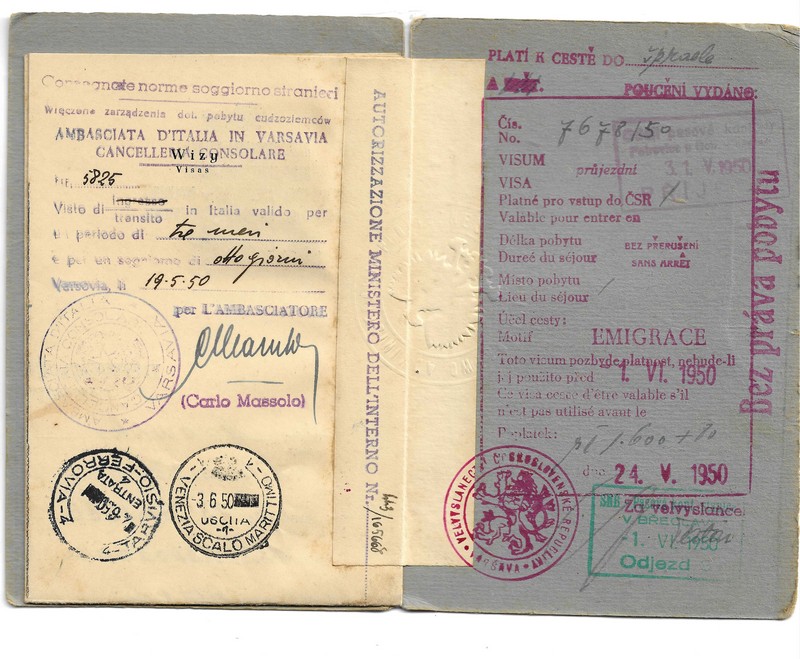 Consegnate norme soggiorno stranieri
Wręczone zarządzenia dot. pobytu cudzoziemców
AMBASCIATA D'ITALIA IN VARSAVIA
CANCELLERIA CONSOLARE
Wizy
Visas
Nr. 5825
Visto di ingresso
transito in Italia valido per
un periodo di tre mesi
e per un soggiorno di otto giorni
Varsavia, li 19.5.50
per L'AMBASCIATORE
(Carlo Massolo)
AMBASCIATA D'ITALIA VARSAVIA
TARVISIO-FERROVIA-4
ENTRATA
VENEZIA SCALO MARITTIMO-4
3 6 50
USCITA
-1-
AUTORIZZAZIONE MINISTERO DELL'INTERNO Nr.
PLATÍ K CESTĚ DO
A
POUČENÍ VYDÁNO:
Čís.
No. 7678/50
VISUM průjezdní
VISA
31. V. 1950
Platné pro vstup do ČSR
Valable pour entrer en
Délka pobytu BEZ PŘERUŠENÍ
Dureé du séjour SANS ARRÊT
Místo pobytu
Lieu du séjour
Účel cesty:
Motif EMIGRACE
Toto visum pozbyde platnost, nebude-li
jej použito před -1. VI. 1950
Ce visa cesse d'être valable s'il
n'est pas utilisé avant le
Poplatek:
dne 24. V. 1950
Za velvyslance
Bez práva pobytu
VELVYSLANECTVÍ ČESKOSLOVENSKÉ REPUBLIKY
VARŠAVA
SNB
V BŘEC
-1. VI 1950
Odjezd